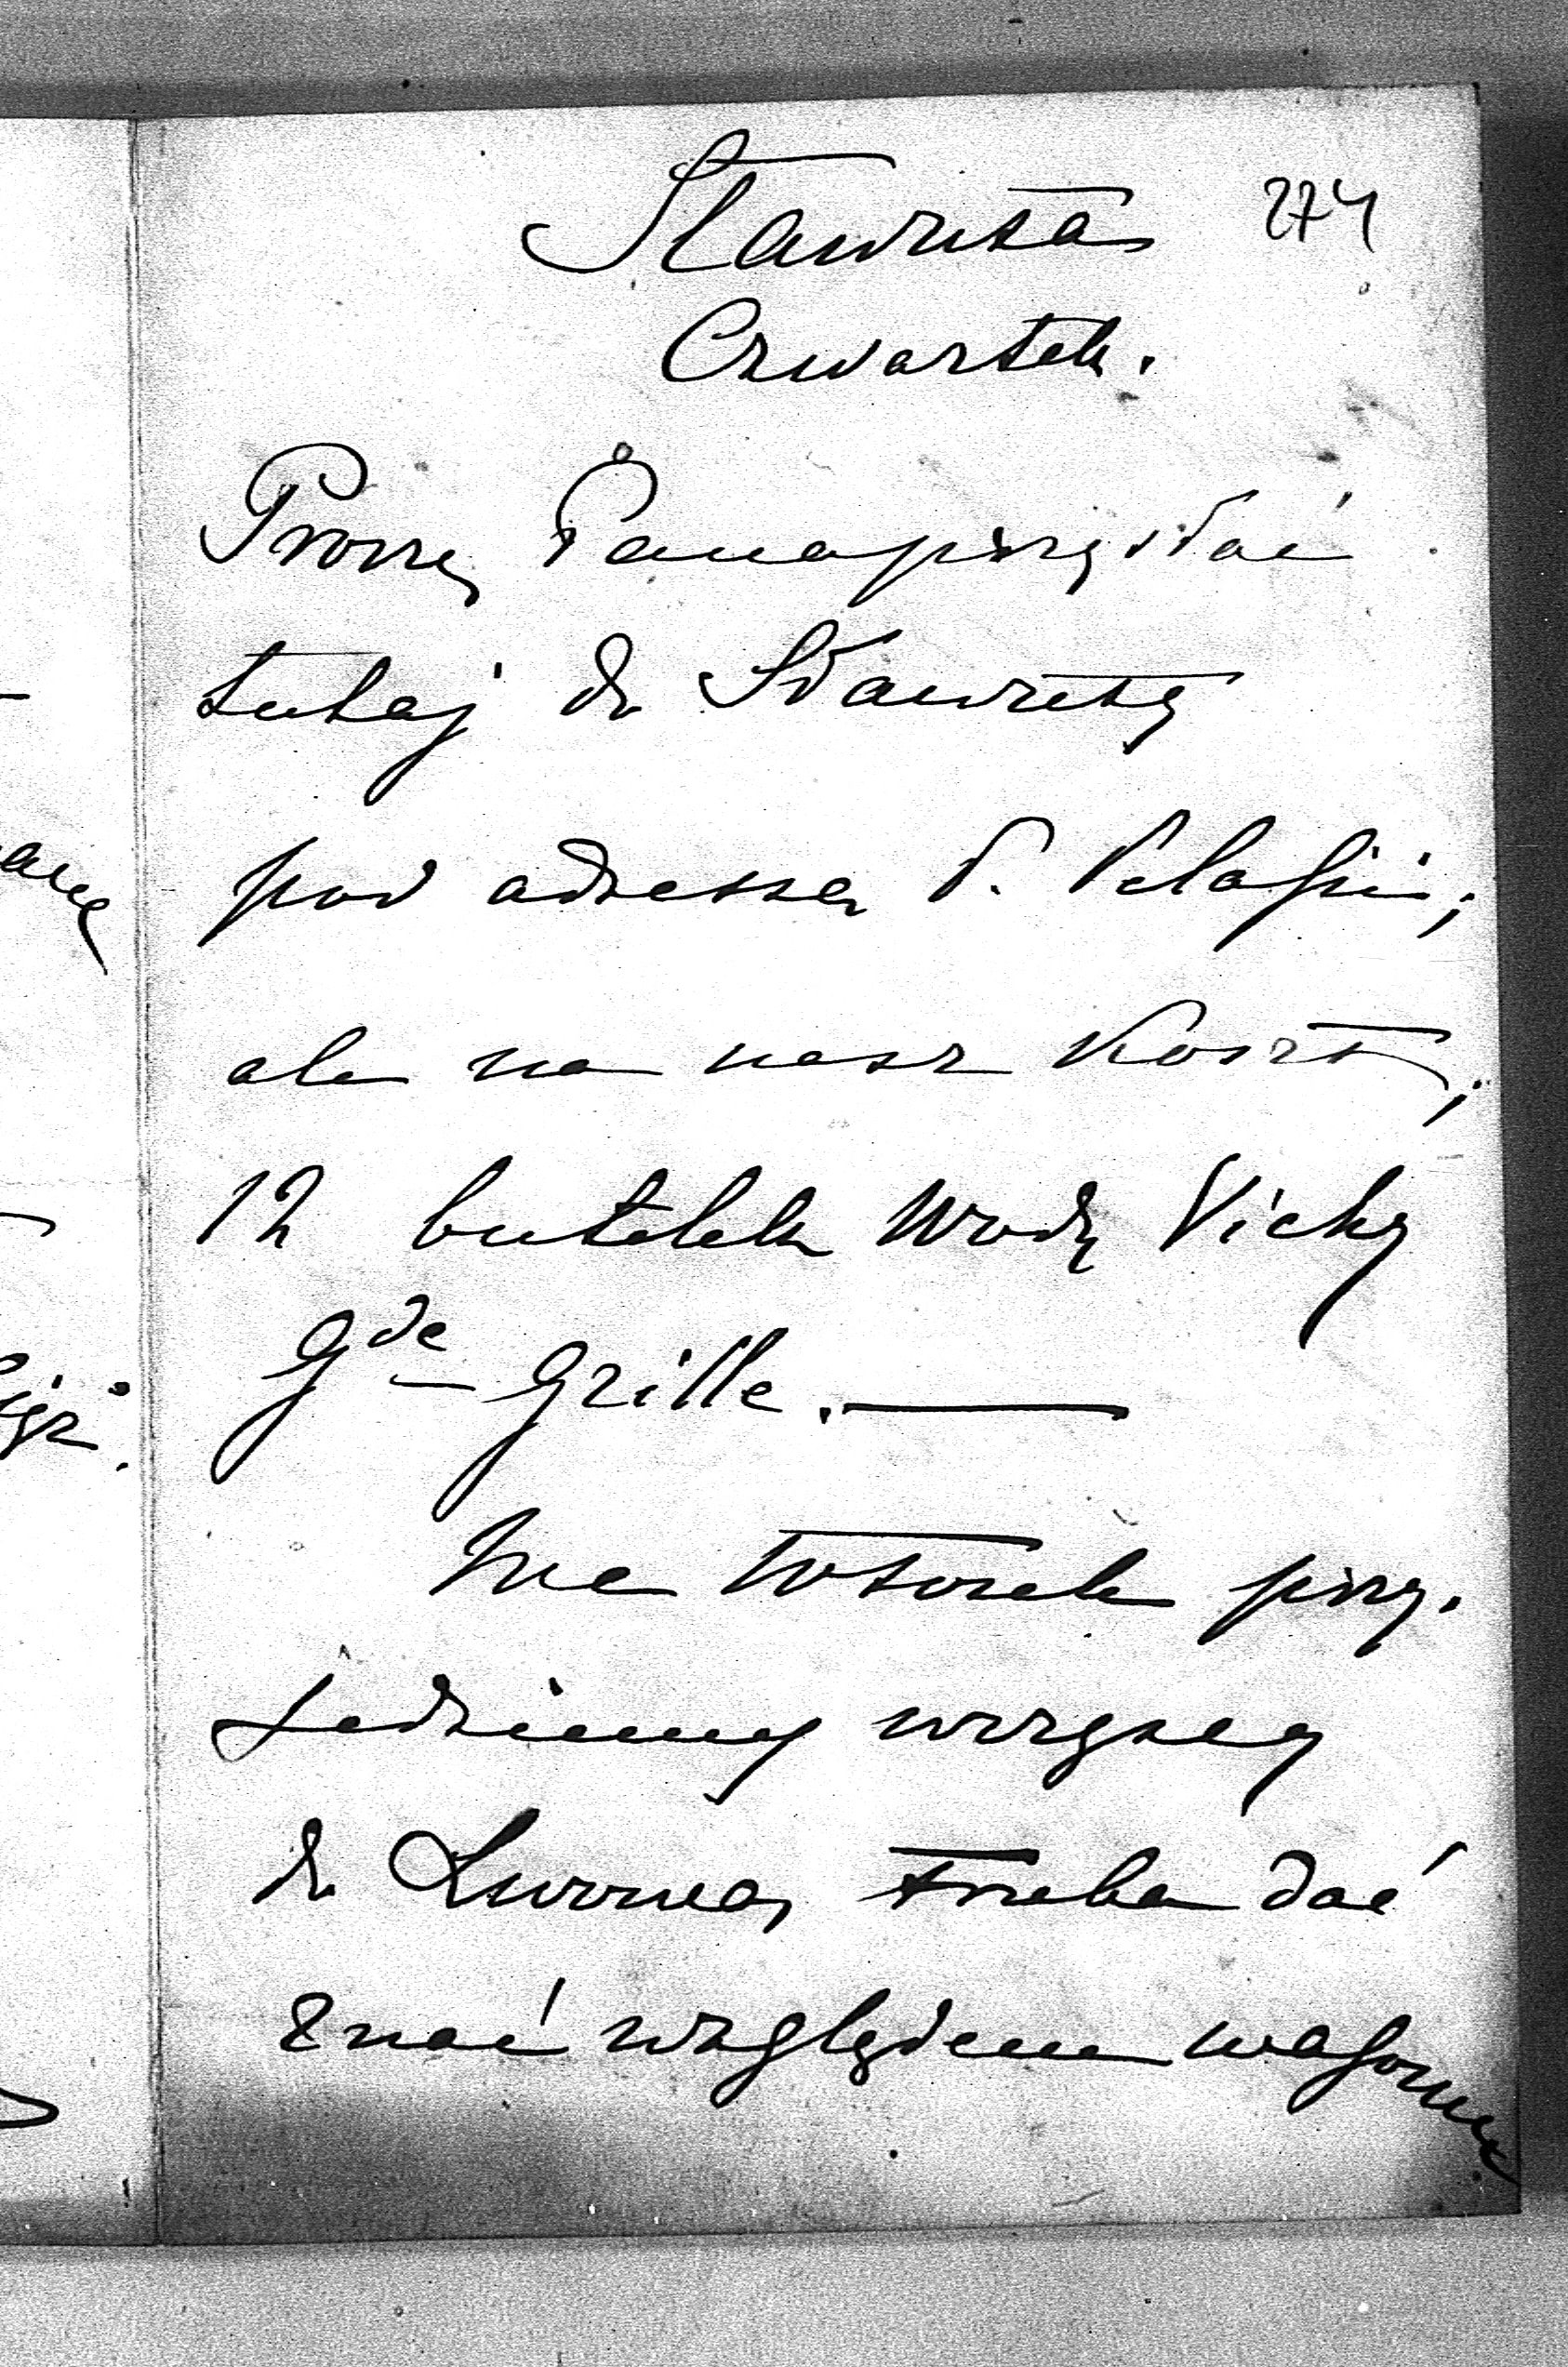 Sławuta 274
Czwartek.
Proszę Pana przysłać
tutaj do Sławuty
pod adresse P. Pelagii;
ale na nasz koszt,
12 butelek Wody Vichy
Gde Grille. —
Na Wtorek przy-
jedziemy wszyscy
do Lwowa, trzeba dać
znać względem wagonu